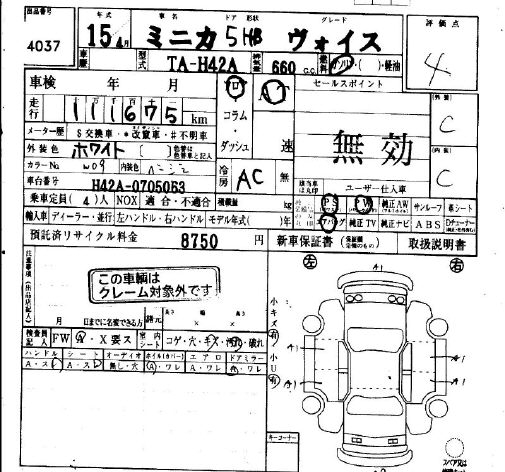 出品番号 年式 車名 ドア 形状 グレード 評価点
4037 15年4月 ミニカ 5HB ヴォイス 4
車歴 型式 TA-H42A 排気量 660 c.c. 燃料 ガソリン・( )・軽油
車検 年 月 セールスポイント
走行 111675 km コラム・ダッシュ AT 速 外装 C
メーター歴 $交換車・*改竄車・#不明車 無効
外装色 ホワイト 内装 C
カラーNo W09 内装色 ベージュ 冷房 AC 無
車台番号 H42A-0705063 ユーザー仕入車
乗車定員 (4) 人 NOX 適合・不適合 積載量 kg PS PW 純正AW サンルーフ 革シート
輸入車 ディーラー・並行 左ハンドル・右ハンドル モデル年式( )年 エアバッグ 純正TV 純正ナビ ABS
預託済リサイクル料金 8750 円 新車保証書 取扱説明書
注意事項(出品店記入)
この車輌は
クレーム対象外です
月 日までに名変できる方 諸元 長さ × 幅 × 高さ
検査員記入 FW A・X要ス 室内シート コゲ・穴・キズ・汚れ・破れ
ハンドル シート オーディオ ホイル(カバー) エアロ ドアミラー
A・ス A・ス 無し・穴 A・ワレ A・ワレ A・ワレ
左 A1 右
小キズ有
小U有
A1 A1
A1 A1
キーコーナー
スペア穴